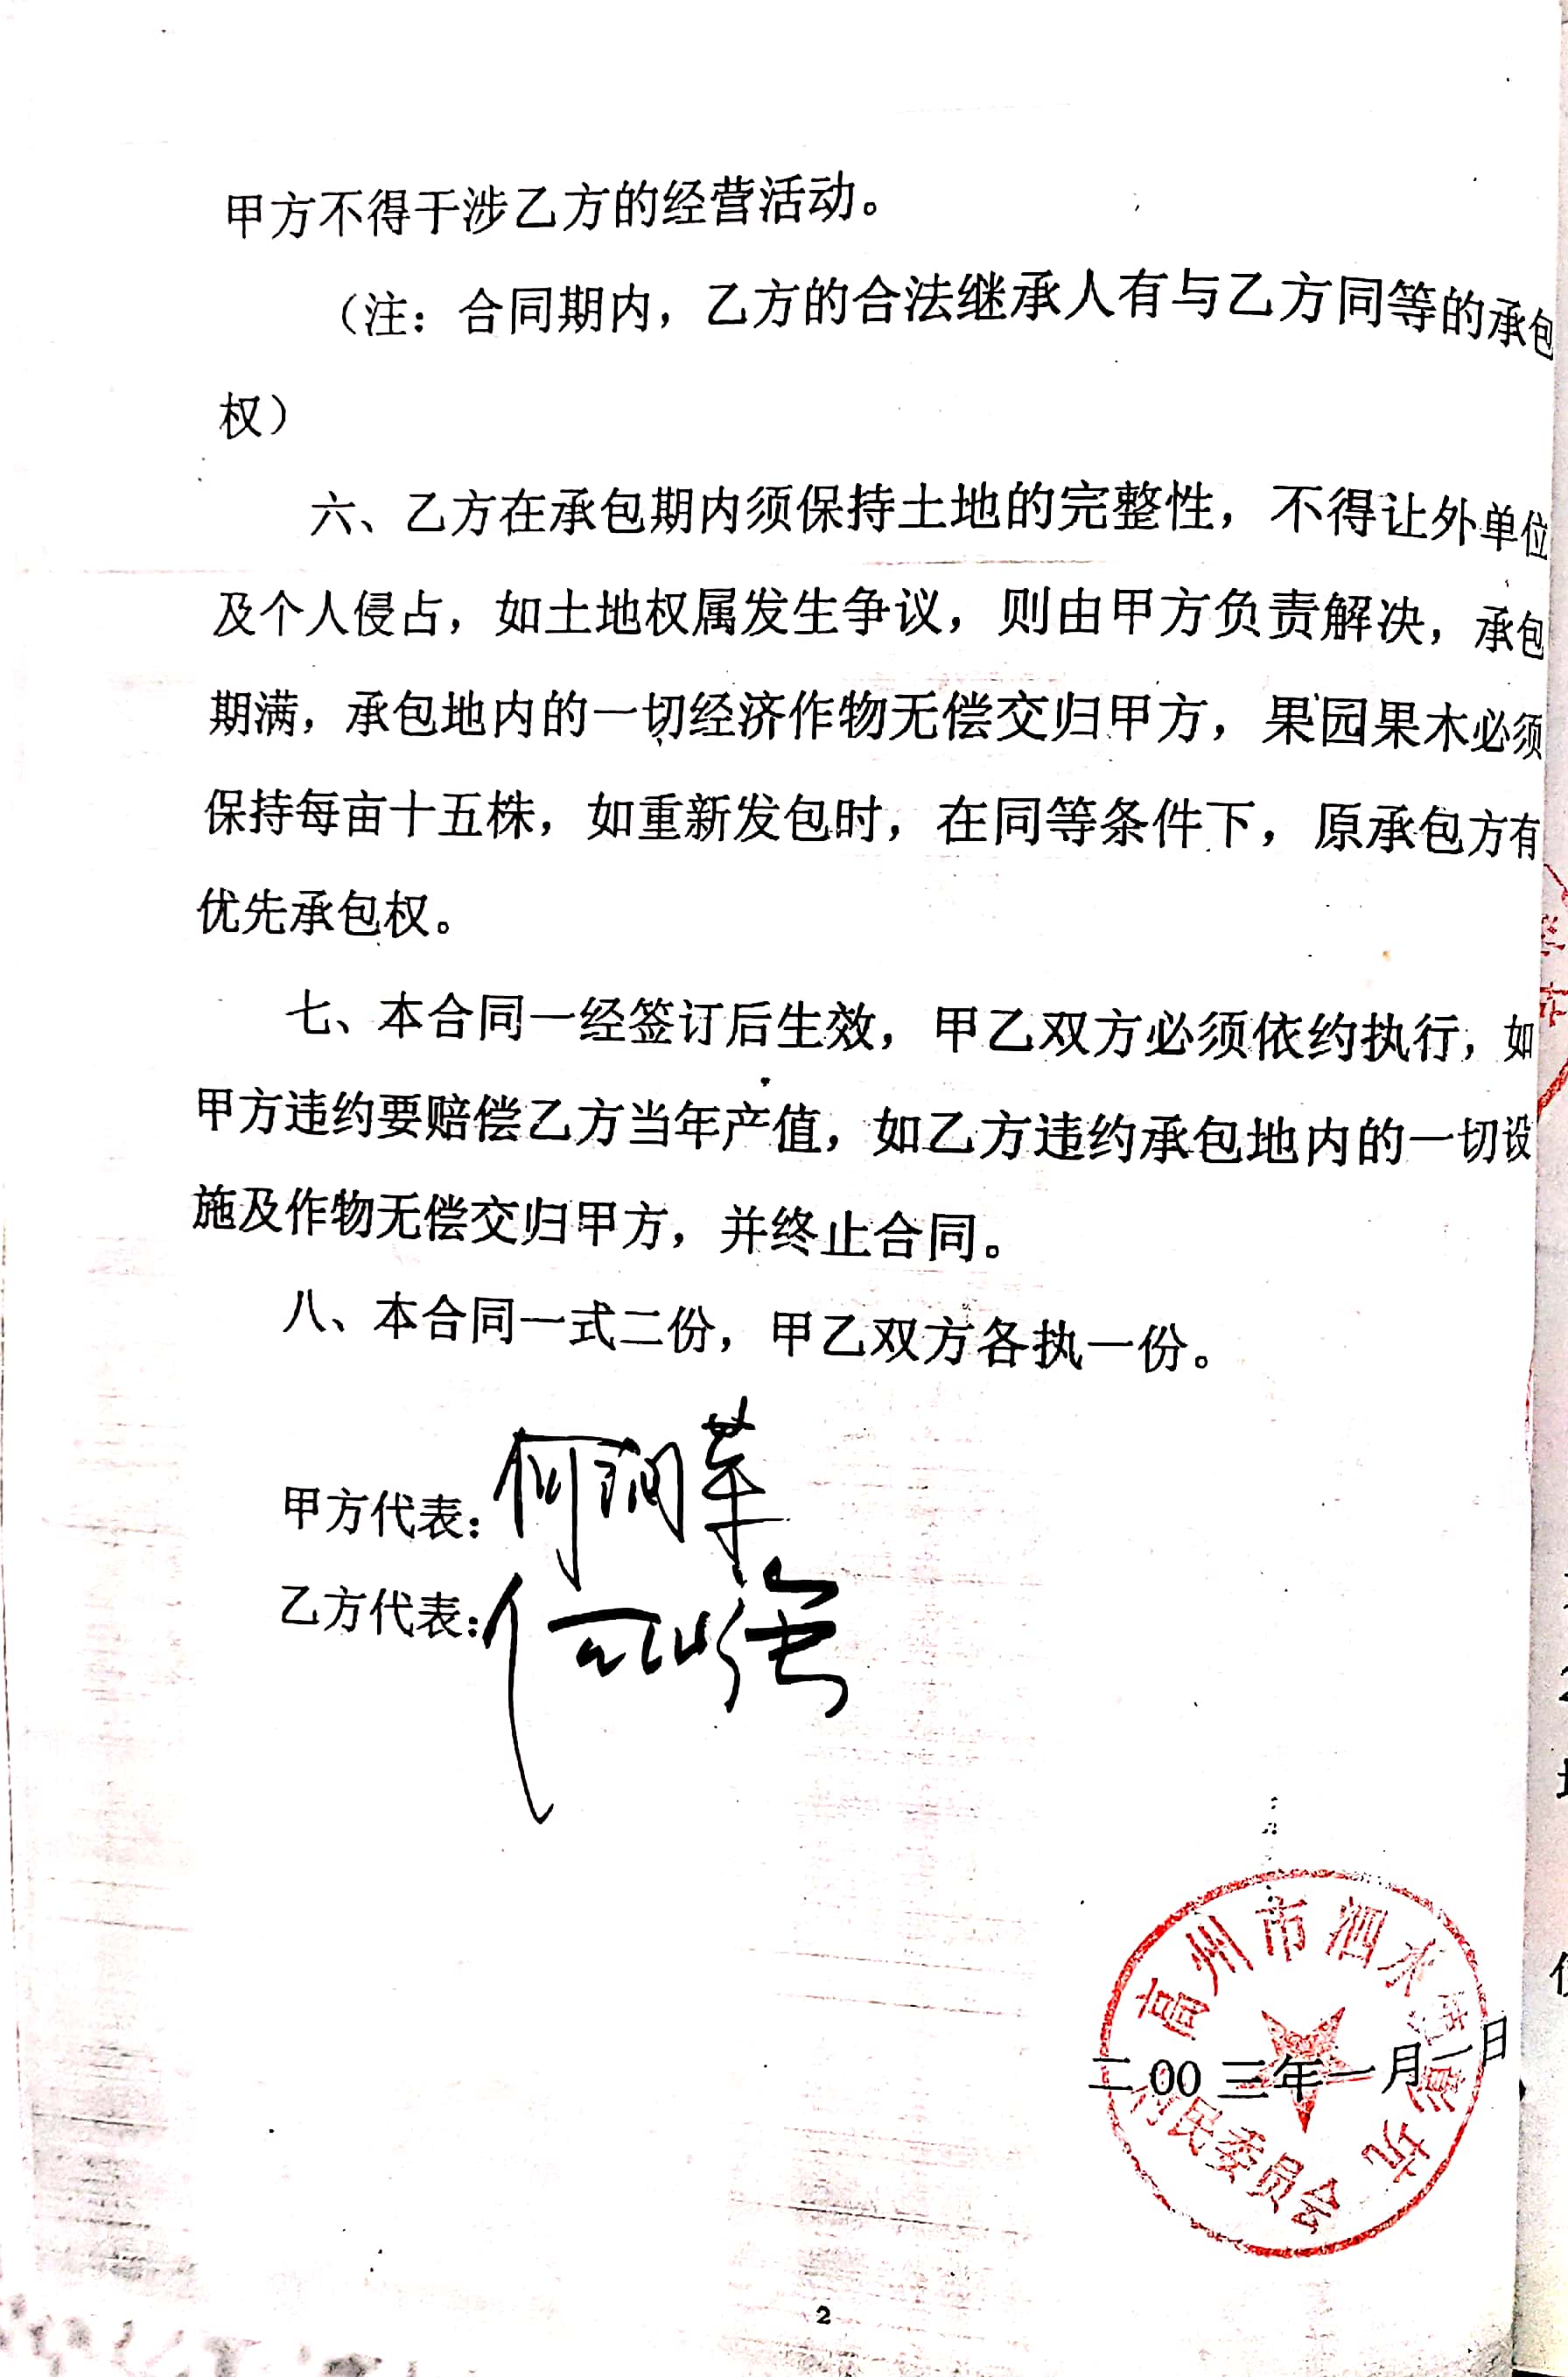 甲方不得干涉乙方的经营活动。
（注：合同期内，乙方的合法继承人有与乙方同等的承包
权）
六、乙方在承包期内须保持土地的完整性，不得让外单位
及个人侵占，如土地权属发生争议，则由甲方负责解决，承包
期满，承包地内的一切经济作物无偿交归甲方，果园果木必须
保持每亩十五株，如重新发包时，在同等条件下，原承包方有
优先承包权。
七、本合同一经签订后生效，甲乙双方必须依约执行，如
甲方违约要赔偿乙方当年产值，如乙方违约承包地内的一切设
施及作物无偿交归甲方，并终止合同。
八、本合同一式二份，甲乙双方各执一份。
甲方代表：何润
乙方代表：何山强
高州市泗水 坑
村民委员会
二00三年一月一日
2